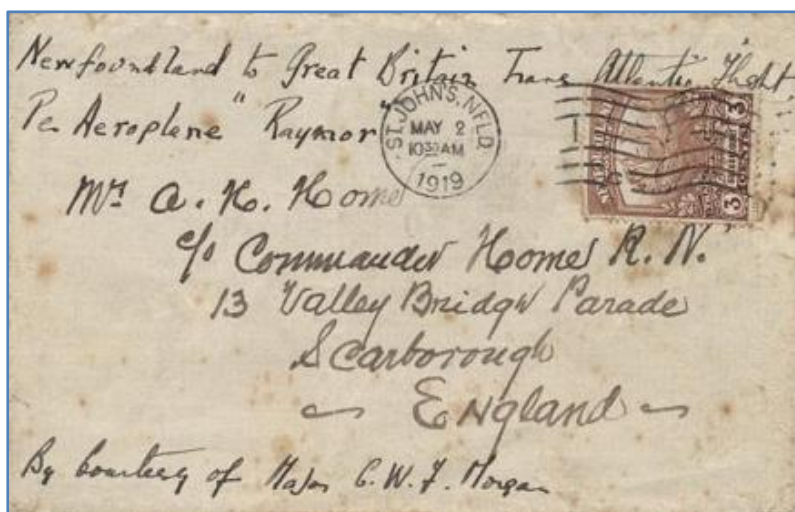 Newfoundland to Great Britain Trans Atlantic Flight
Per Aeroplane "Raymor"
ST. JOHN'S, NFLD.
MAY 2
10 30 AM
1919
3 CENTS 3
Mrs A. H. Home
c/o Commander Home R. N.
13 Valley Bridge Parade
Scarborough
England
By Courtesy of Major C. W. F. Morgan